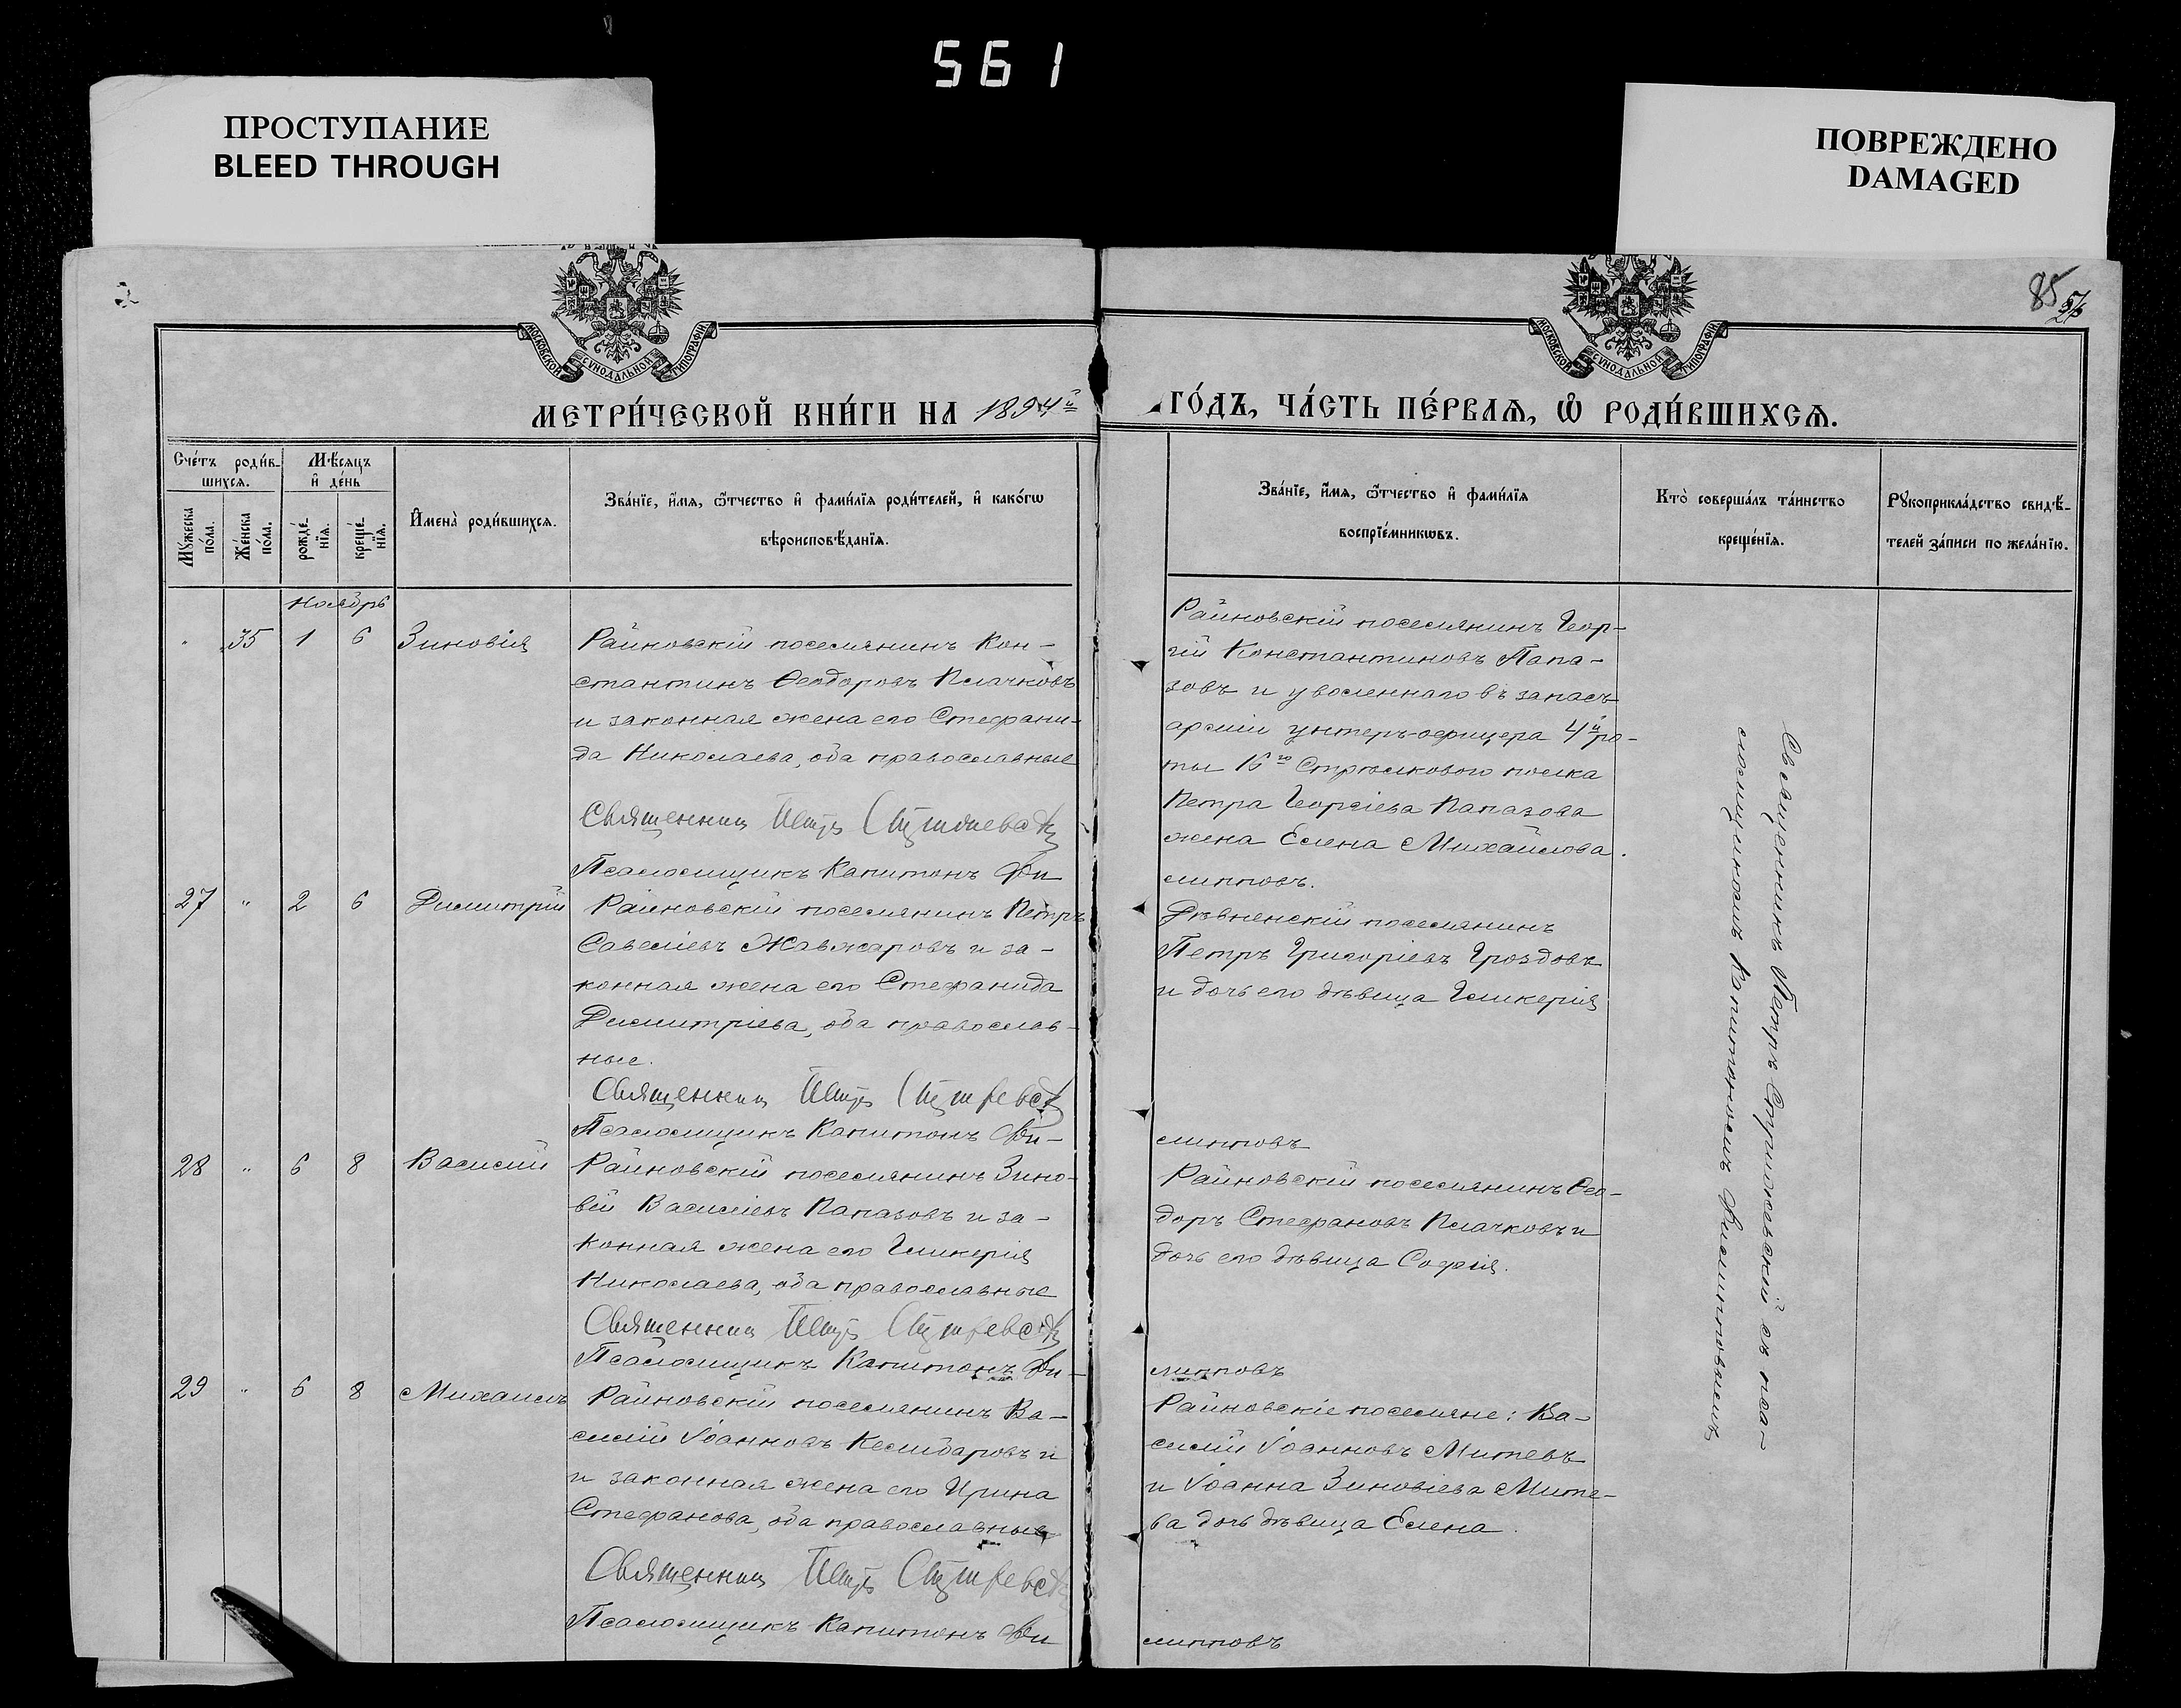 561
ПРОСТУПАНИЕ
BLEED THROUGH
ПОВРЕЖДЕНО
DAMAGED
МОСКОВСКОЙ СѴНОДАЛЬНОЙ ТИПОГРАФІИ
МОСКОВСКОЙ СѴНОДАЛЬНОЙ ТИПОГРАФІИ
85
МЕТРИ́ЧЕСКОЙ КНИ́ГИ НА 1894й
ГО́ДЪ, ЧА́СТЬ ПЕ́РВАѦ, Ѽ РОДИ́ВШИХСѦ.
Сче́тъ роди́в-
шихсѧ.
Мѣ́сѧцъ
и҆ де́нь
Мꙋ́жеска
по́ла.
Же́нска
по́ла.
рожде́-
нїѧ.
креще́-
нїѧ.
И҆мена̀ роди́вшихсѧ.
Зва́нїе, и҆́мѧ, ѻ҆́тчество и҆ фами́лїѧ роди́телей, и҆ како́гѡ
вѣроисповѣ́данїѧ.
Зва́нїе, и҆́мѧ, ѻ҆́тчество и҆ фами́лїѧ
воспрїе́мникѡвъ.
Кто̀ соверша́лъ та́инство
креще́нїѧ.
Рꙋкоприкла́дство свидѣ́-
телей за́писи по жела́нїю.
Ноябрь
" 35 1 6 Зиновія
Райновскій поселянинъ Кон-
стантинъ Ѳеодоровъ Плачковъ
и законная жена его Стефани-
да Николаева, оба православные
Священник Петръ
Псаломщикъ Капитонъ Фи
Райновскій поселянинъ Геор-
гій Константиновъ Папа-
зовъ и уволеннаго въ запасъ
арміи унтеръ-офицера 4й ро-
ты 16го Стрѣлковаго полка
Петра Георгіева Папазова
жена Елена Михайлова.
липповъ.
27 " 2 6 Димитрій
Райновскій поселянинъ Петръ
Савеліевъ Жавжаровъ и за-
конная жена его Стефанида
Димитріева, оба православ-
ные.
Священник Петръ
Псаломщикъ Капитонъ Фи-
Дѣвненскій поселянинъ
Петръ Григоріевъ Гроздовъ
и дочь его дѣвица Гликерія
липповъ
28 " 6 8 Василій
Райновскій поселянинъ Зино-
вій Василіевъ Папазовъ и за-
конная жена его Гликерія
Николаева, оба православные
Священник Петръ
Псаломщикъ Капитонъ Фи-
Райновскій поселянинъ Ѳео-
доръ Стефановъ Плачковъ и
дочь его дѣвица Софія.
липповъ
29 " 6 8 Михаилъ
Райновскій поселянинъ Ва-
силій Іоанновъ Келибаровъ и
и законная жена его Ирина
Стефанова, оба православные
Священник Петръ
Псаломщикъ Капитонъ Фи
Райновскіе поселяне: Ва-
силій Іоанновъ Митевъ
и Іоанна Зиновіева Мите-
ва дочь дѣвица Елена.
липповъ
Священникъ Петръ съ пса-
ломщикомъ Капитономъ Филипповымъ